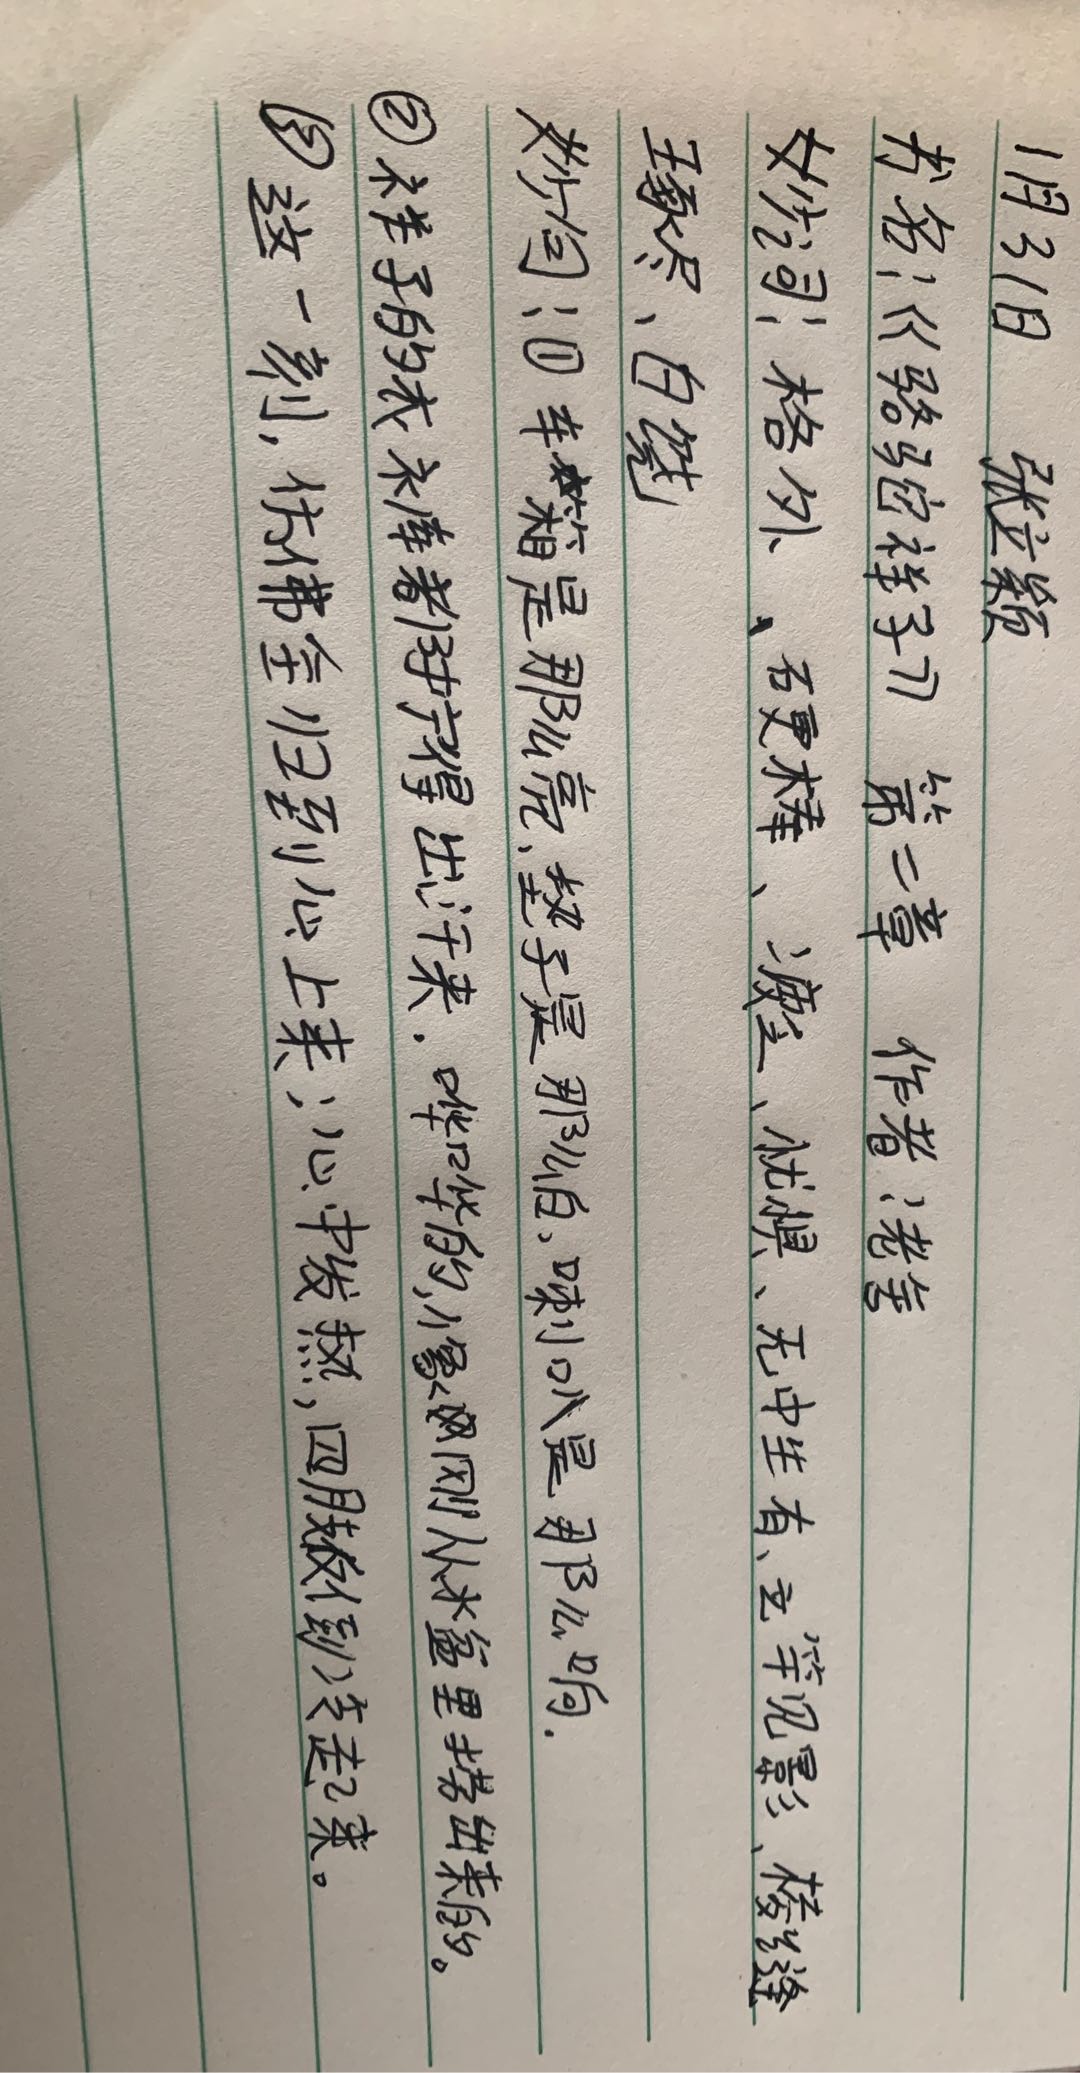 1月31日 张立颖
书名:《骆驼祥子》 第二章 作者:老舍
好词:格外、硬棒、凄立、忧惧、无中生有、立竿见影、棱缝
琢尽、白饶
妙句:①车箱是那么亮,垫子是那么白,喇叭是那么响.
②祥子的衣裤都拧得出汗来.哗哗的,像刚从水盆里捞出来的。
③这一刻,仿佛全归到心上来;心中发热,四肢倒冷起来。